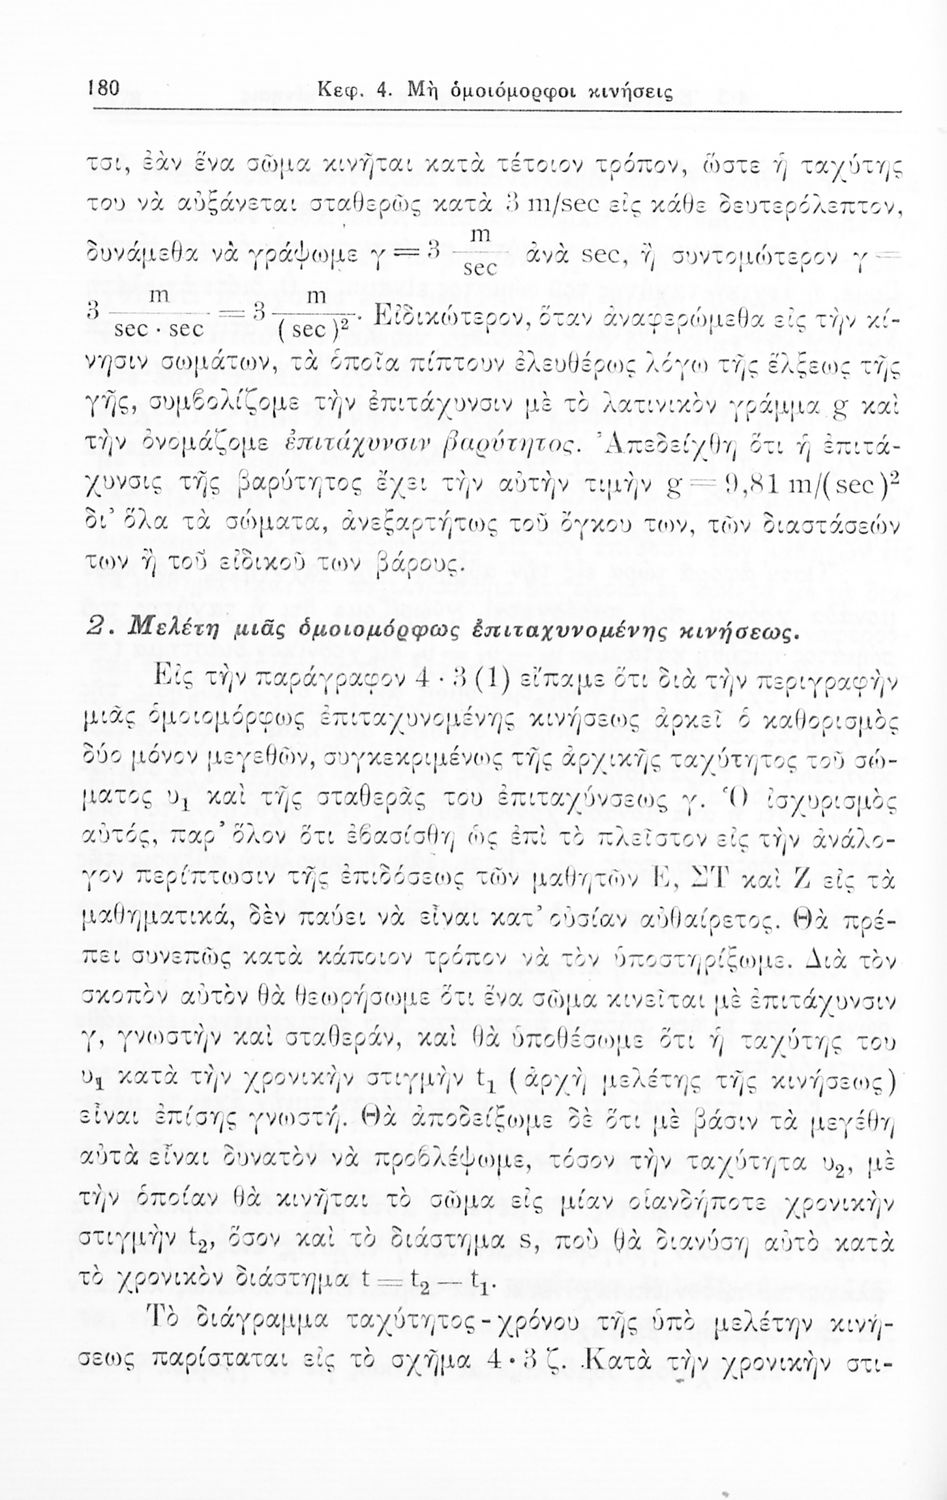 180 Κεφ. 4. Μὴ ὁμοιόμορφοι κινήσεις
τσι, ἐὰν ἕνα σῶμα κινῆται κατὰ τέτοιον τρόπον, ὥστε ἡ ταχύτης
του νὰ αὐξάνεται σταθερῶς κατὰ 3 m/sec εἰς κάθε δευτερόλεπτον,
δυνάμεθα νὰ γράψωμε γ = 3 m/sec ἀνὰ sec, ἢ συντομώτερον γ =
3 m/(sec · sec) = 3 m/(sec)². Εἰδικώτερον, ὅταν ἀναφερώμεθα εἰς τὴν κί-
νησιν σωμάτων, τὰ ὁποῖα πίπτουν ἐλευθέρως λόγω τῆς ἕλξεως τῆς
γῆς, συμβολίζομε τὴν ἐπιτάχυνσιν μὲ τὸ λατινικὸν γράμμα g καὶ
τὴν ὀνομάζομε ἐπιτάχυνσιν βαρύτητος. Ἀπεδείχθη ὅτι ἡ ἐπιτά-
χυνσις τῆς βαρύτητος ἔχει τὴν αὐτὴν τιμὴν g = 9,81 m/(sec)²
δι᾽ ὅλα τὰ σώματα, ἀνεξαρτήτως τοῦ ὄγκου των, τῶν διαστάσεών
των ἢ τοῦ εἰδικοῦ των βάρους.
2. Μελέτη μιᾶς ὁμοιομόρφως ἐπιταχυνομένης κινήσεως.
Εἰς τὴν παράγραφον 4 · 3 (1) εἴπαμε ὅτι διὰ τὴν περιγραφὴν
μιᾶς ὁμοιομόρφως ἐπιταχυνομένης κινήσεως ἀρκεῖ ὁ καθορισμὸς
δύο μόνον μεγεθῶν, συγκεκριμένως τῆς ἀρχικῆς ταχύτητος τοῦ σώ-
ματος υ₁ καὶ τῆς σταθερᾶς του ἐπιταχύνσεως γ. Ὁ ἰσχυρισμὸς
αὐτός, παρ᾽ ὅλον ὅτι ἐβασίσθη ὡς ἐπὶ τὸ πλεῖστον εἰς τὴν ἀνάλο-
γον περίπτωσιν τῆς ἐπιδόσεως τῶν μαθητῶν Ε, ΣΤ καὶ Ζ εἰς τὰ
μαθηματικά, δὲν παύει νὰ εἶναι κατ᾽ οὐσίαν αὐθαίρετος. Θὰ πρέ-
πει συνεπῶς κατὰ κάποιον τρόπον νὰ τὸν ὑποστηρίξωμε. Διὰ τὸν
σκοπὸν αὐτὸν θὰ θεωρήσωμε ὅτι ἕνα σῶμα κινεῖται μὲ ἐπιτάχυνσιν
γ, γνωστὴν καὶ σταθεράν, καὶ θὰ ὑποθέσωμε ὅτι ἡ ταχύτης του
υ₁ κατὰ τὴν χρονικὴν στιγμὴν t₁ (ἀρχὴ μελέτης τῆς κινήσεως)
εἶναι ἐπίσης γνωστή. Θὰ ἀποδείξωμε δὲ ὅτι μὲ βάσιν τὰ μεγέθη
αὐτὰ εἶναι δυνατὸν νὰ προβλέψωμε, τόσον τὴν ταχύτητα υ₂, μὲ
τὴν ὁποίαν θὰ κινῆται τὸ σῶμα εἰς μίαν οἱανδήποτε χρονικὴν
στιγμὴν t₂, ὅσον καὶ τὸ διάστημα s, ποὺ θὰ διανύση αὐτὸ κατὰ
τὸ χρονικὸν διάστημα t = t₂ — t₁.
Τὸ διάγραμμα ταχύτητος - χρόνου τῆς ὑπὸ μελέτην κινή-
σεως παρίσταται εἰς τὸ σχῆμα 4 · 3 ζ. Κατὰ τὴν χρονικὴν στι-